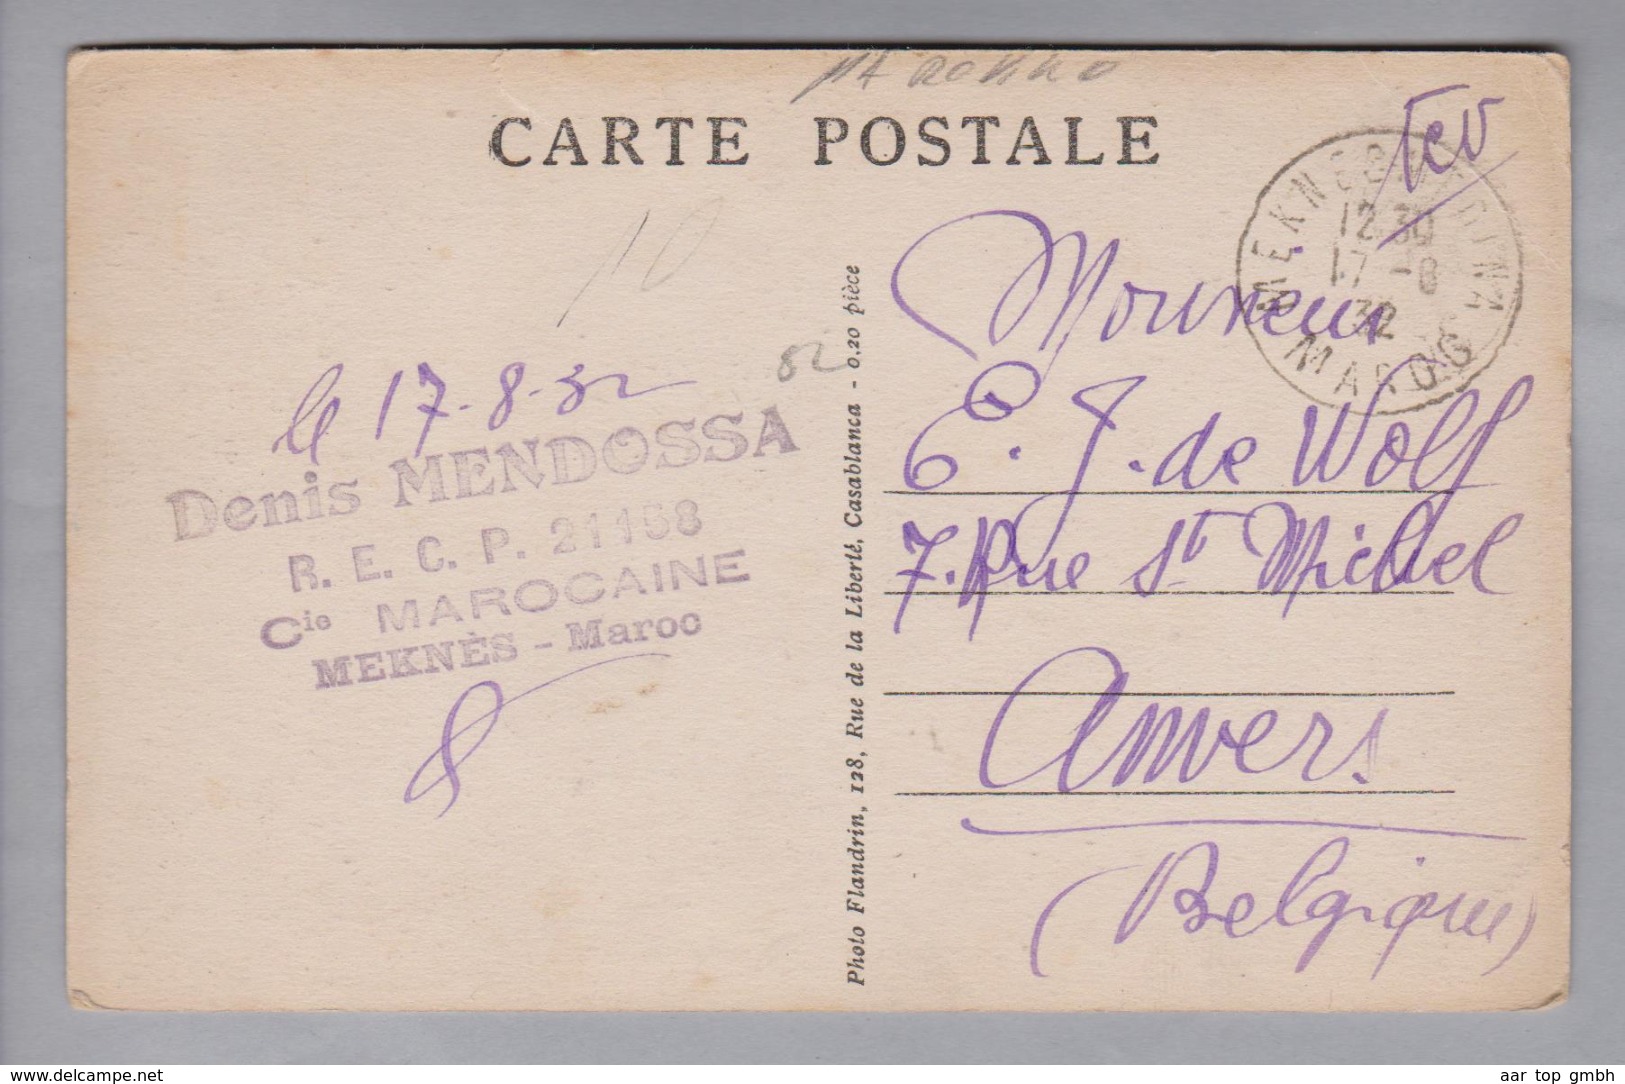 MAROKKO
CARTE POSTALE
TCV
MEKNES-MEDINA
12 30
17 -8
32
MAROC
10
82
le 17-8-32
Denis MENDOSSA
R. E. C. P. 21158
Cie MAROCAINE
MEKNÈS - Maroc
Photo Flandrin, 128, Rue de la Liberté, Casablanca - 0.20 pièce
Monsieur
E. J. de Wolf
7. Rue St Michel
Anvers
(Belgique)
www.delcampe.net
aar top gmbh